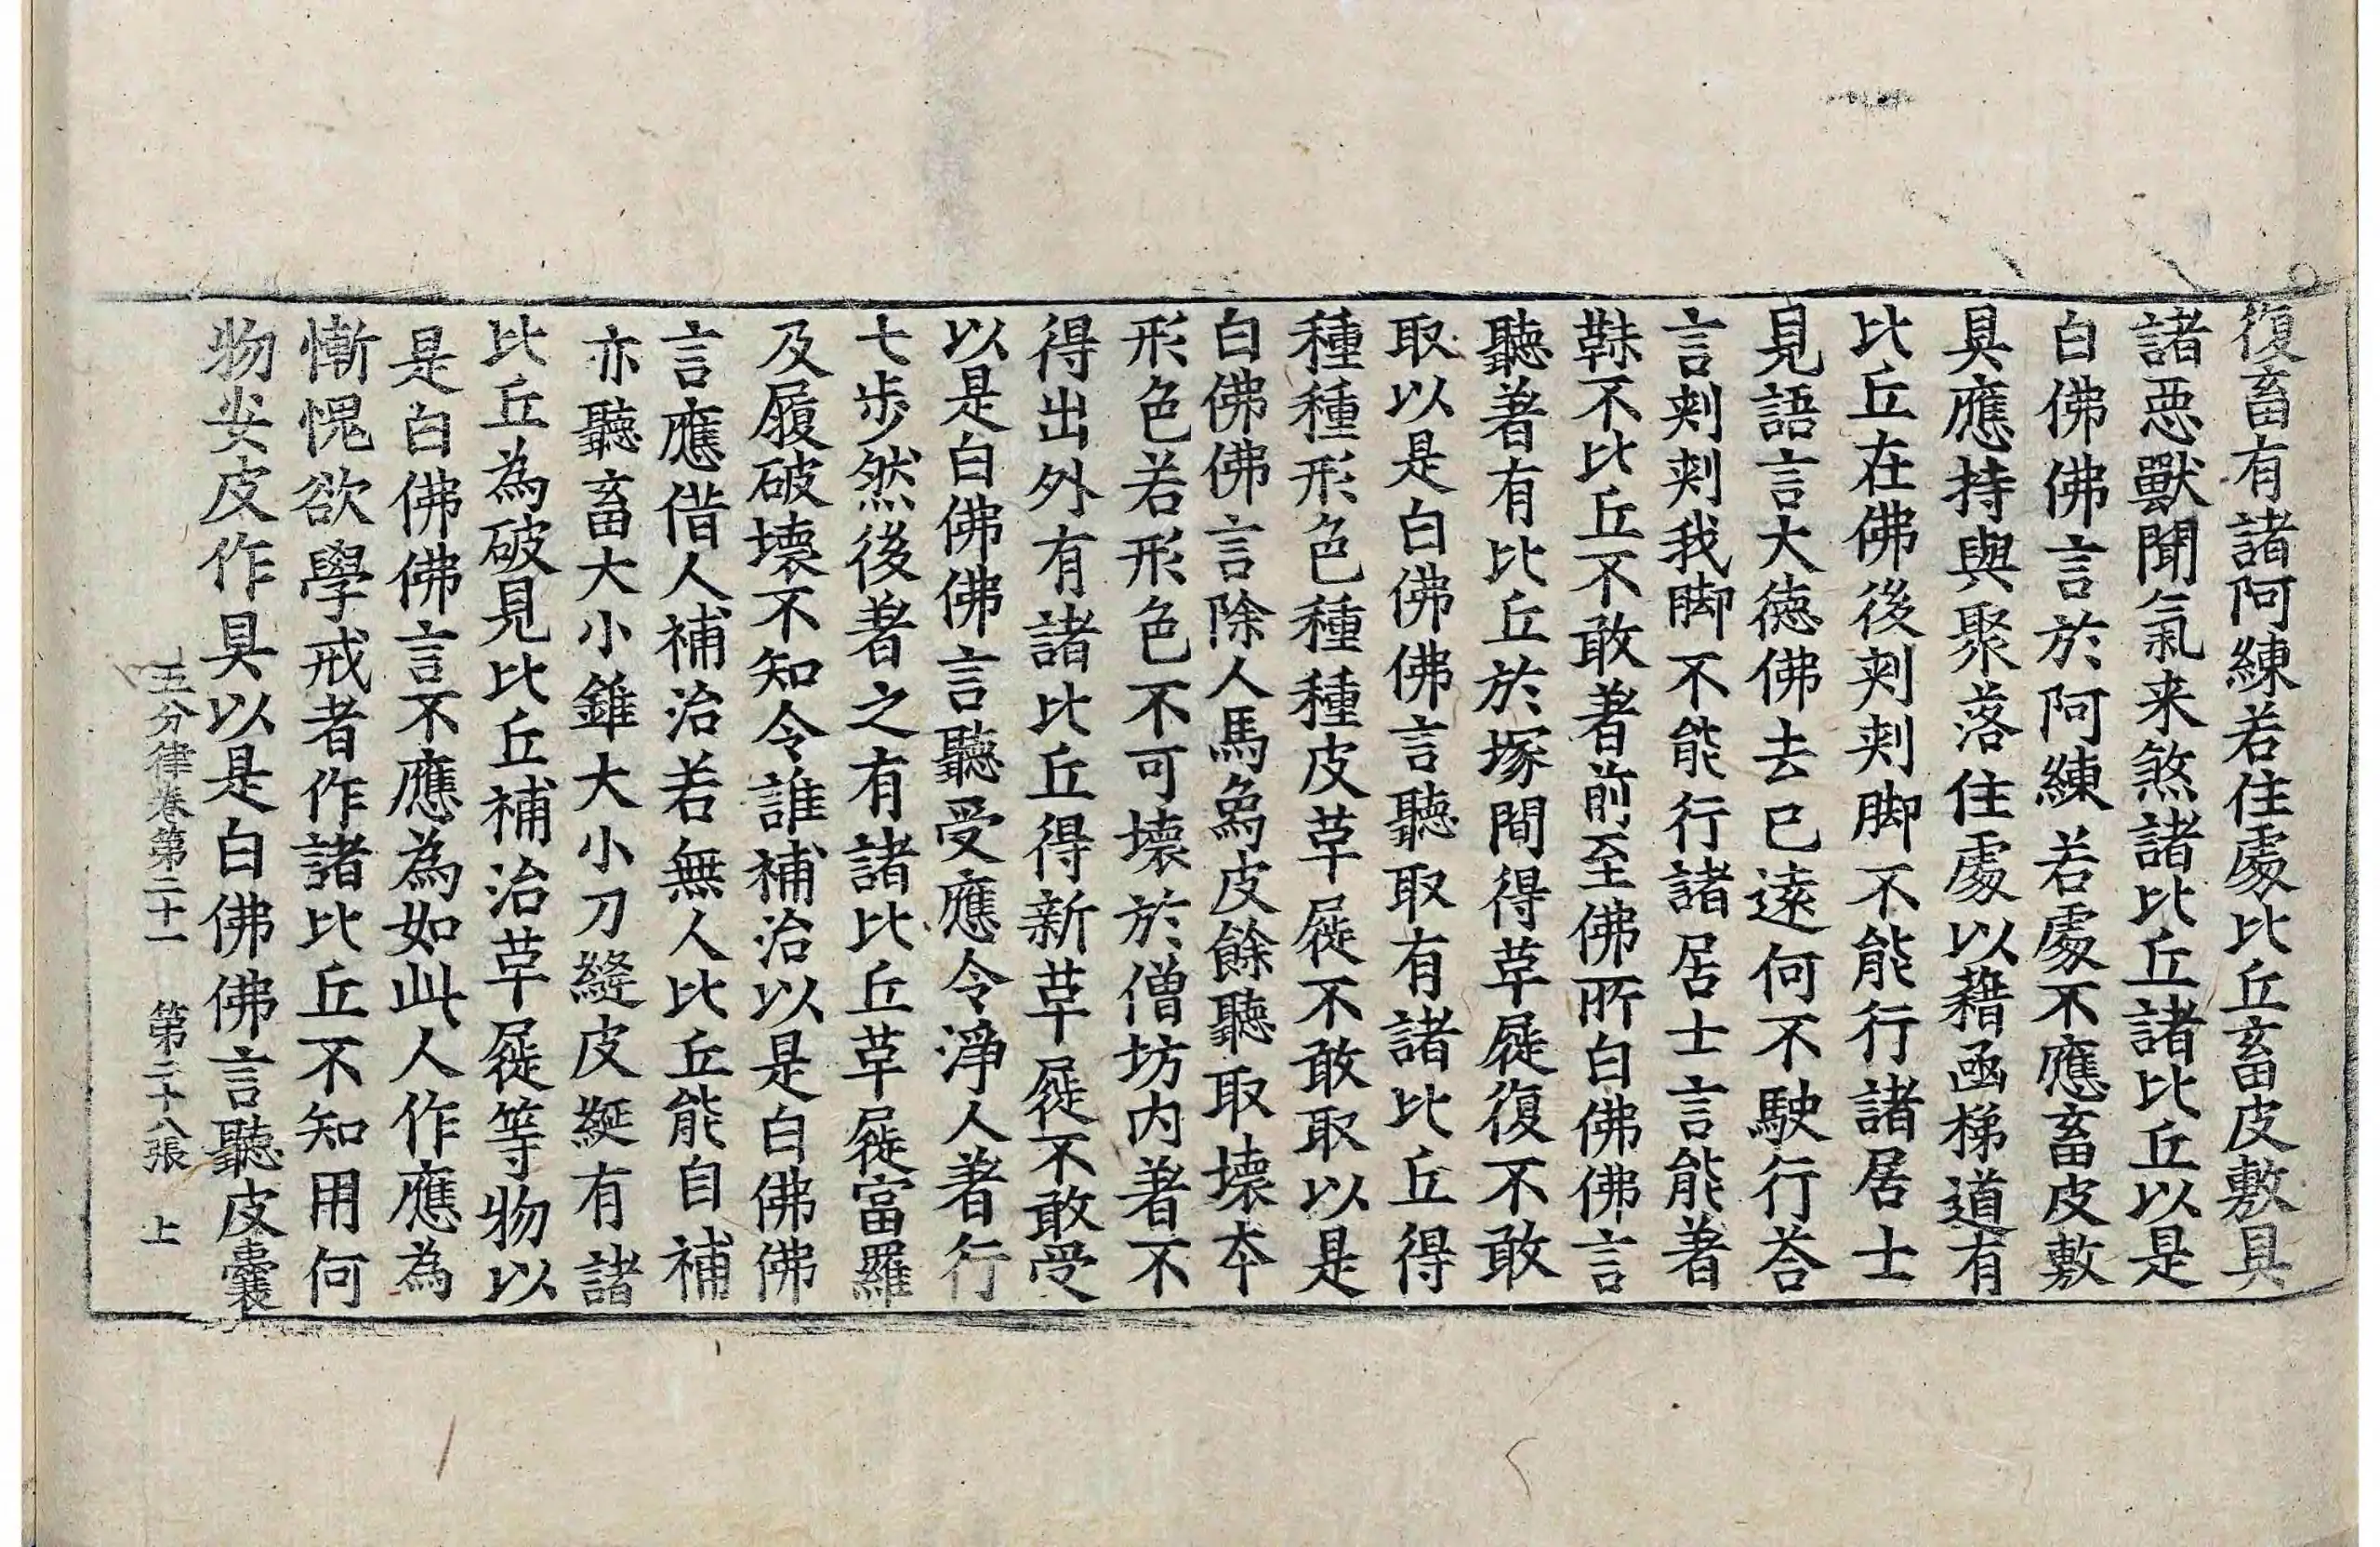 復畜有諸阿練若住處比丘畜皮敷具
諸惡獸聞氣来煞諸比丘諸比丘以是
白佛佛言於阿練若處不應畜皮敷
具應持與聚落住處以藉凾梯道有
比丘在佛後刾刾脚不能行諸居士
見語言大德佛去已遠何不駛行荅
言刾刾我脚不能行諸居士言能著
靺不比丘不敢著前至佛所白佛佛言
聽著有比丘於塚間得草屣復不敢
取以是白佛佛言聽取有諸比丘得
種種形色種種皮草屣不敢取以是
白佛佛言除人馬烏皮餘聽取壞夲
形色若形色不可壞於僧坊内著不
得出外有諸比丘得新草屣不敢受
以是白佛佛言聽受應令淨人著行
七步然後著之有諸比丘草屣富羅
及履破壞不知令誰補治以是白佛佛
言應借人補治若無人比丘能自補
亦聽畜大小錐大小刀縫皮綖有諸
比丘為破見比丘補治草屣等物以
是白佛佛言不應為如此人作應為
慚愧欲學戒者作諸比丘不知用何
物安皮作具以是白佛佛言聽皮囊
五分律卷第二十一 第二十八張 上